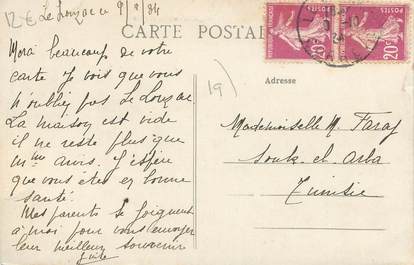 12 €
Le Louzac le 9/8/34
CARTE POSTALE
POSTES
POSTES
20 c
20 c
19)
Adresse
Merci beaucoup de votre
carte. Je vois que vous
n'oubliez pas Le Louzac
La maison est vide
il ne reste plus que
mes amis. J'espère
que vous êtes en bonne
santé.
Mes parents se joignent
à moi pour vous envoyer
leur meilleur souvenir
Mademoiselle M. Faraf
Souk el arba
Tunisie